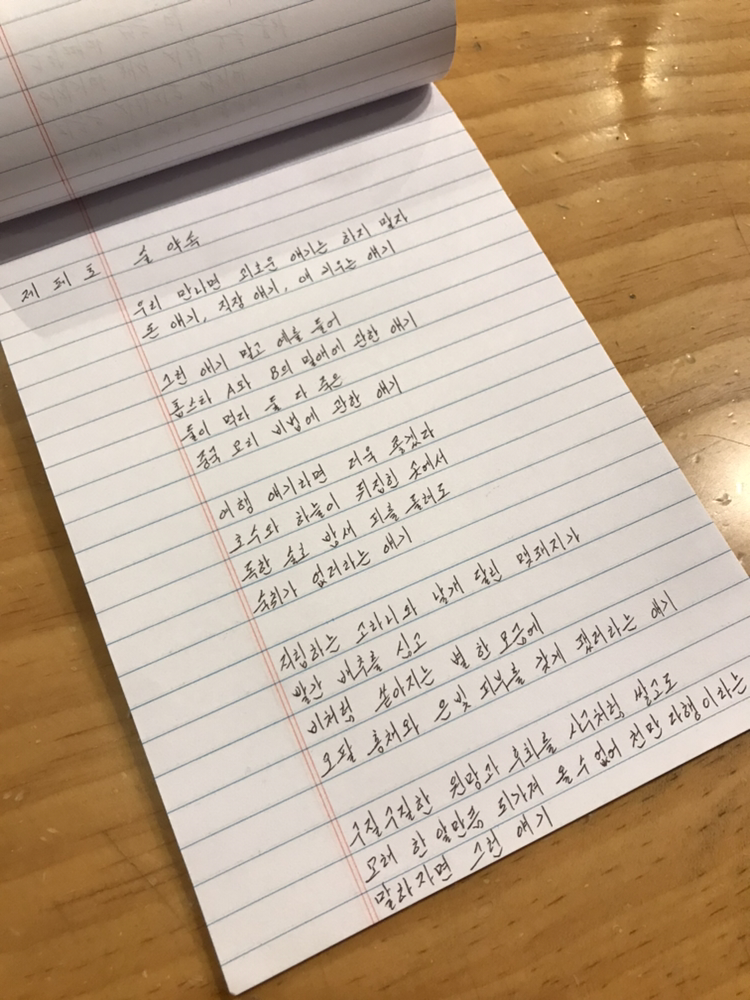 제 페 토   술 약속
우리 만나면 괴로운 얘기는 하지 말자
돈 얘기, 직장 얘기, 애 키우는 얘기
그런 얘기 말고 예를 들어
톱스타 A와 B의 밀애에 관한 얘기
둘이 먹다 둘 다 죽은
중국 요리 비법에 관한 얘기
여행 얘기라면 더욱 좋겠다
호수와 하늘이 뒤집힌 곳에서
독한 술로 밤새 피를 돌려도
숙취가 없더라는 얘기
직립하는 고라니와 날개 달린 멧돼지가
빨간 배추를 심고
비처럼 쏟아지는 별 한 모금에
오팔 홍채와 은빛 피부를 갖게 됐더라는 얘기
구질구질한 원망과 후회를 싸구처럼 씻고도
모래 한 알만큼 되가져 올 수 없어 천만 다행이라는
말하자면 그런 얘기